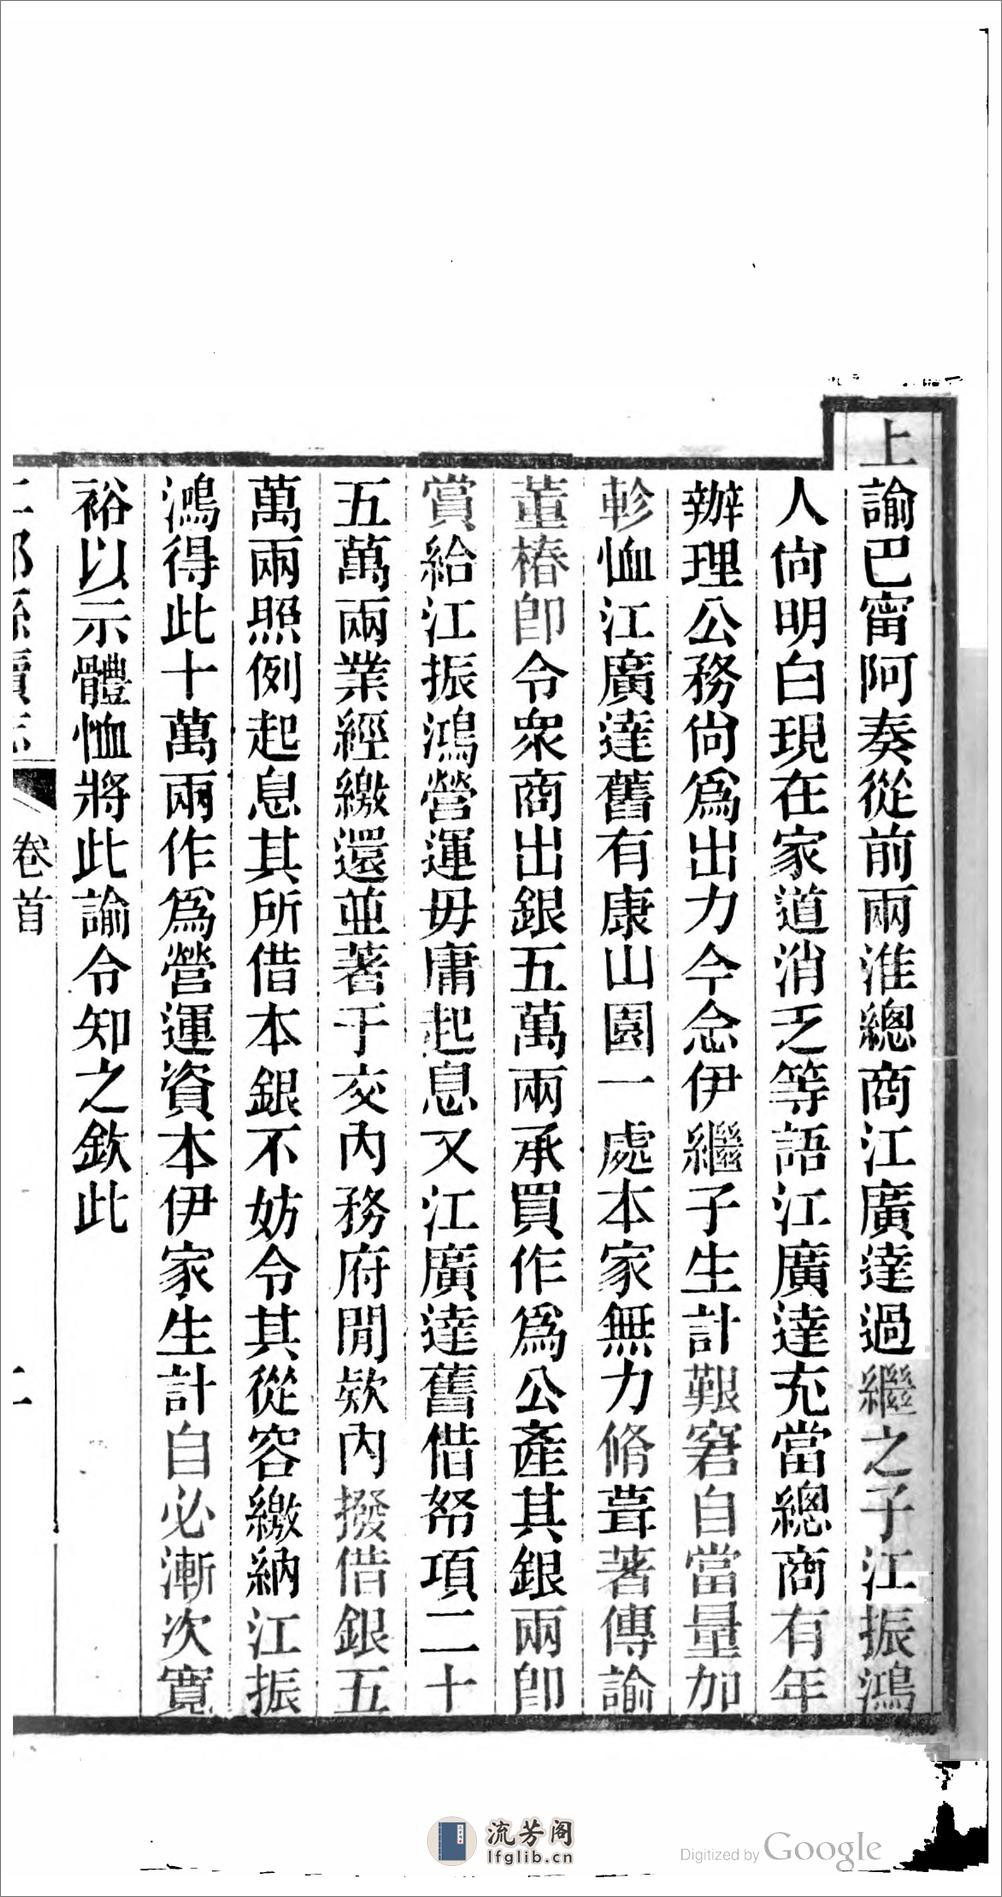 上諭巴甯阿奏從前兩淮總商江廣達過繼之子江振鴻
人尙明白現在家道消乏等語江廣達充當總商有年
辦理公務尙爲出力今念伊繼子生計艱窘自當量加
軫恤江廣達舊有康山園一處本家無力脩葺著傳諭
董椿卽令衆商出銀五萬兩承買作爲公產其銀兩卽
賞給江振鴻營運毋庸起息又江廣達舊借帑項二十
五萬兩業經繳還並著于交內務府閒欵內撥借銀五
萬兩照例起息其所借本銀不妨令其從容繳納江振
鴻得此十萬兩作爲營運資本伊家生計自必漸次寬
裕以示體恤將此諭令知之欽此
卷首
流芳阁
lfglib.cn
Digitized by Google